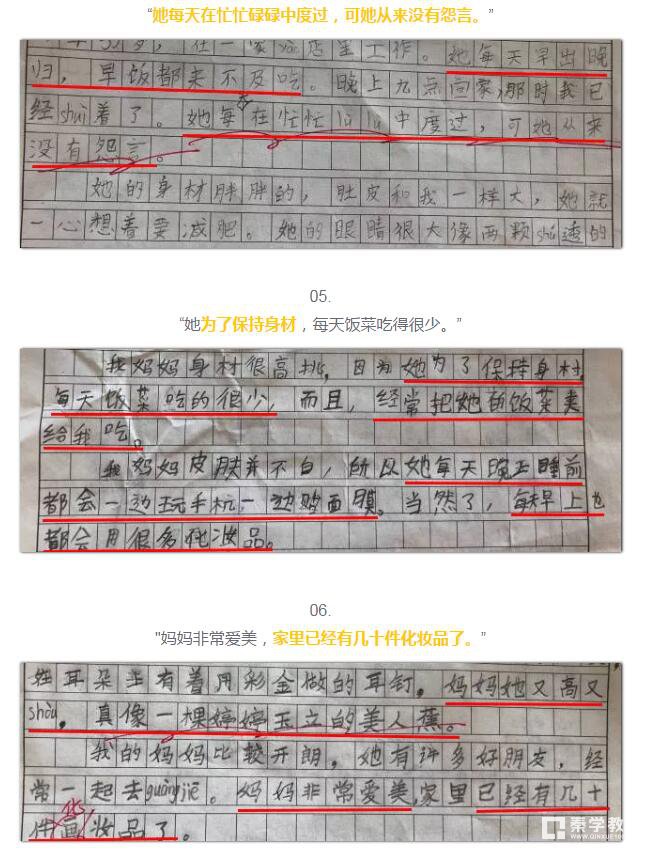 “她每天在忙忙碌碌中度过，可她从来没有怨言。”
岁，在一家yào店里工作。她每天早出晚
归，早饭都来不及吃。晚上九点回家，那时我已
经shuì着了。她每在忙忙lùlù中度过，可她从来
没有怨言。
她的身材胖胖的，肚皮和我一样大，她就
一心想着要减肥。她的眼睛很大像两颗shú透的
05.
“她为了保持身材，每天饭菜吃得很少。”
我妈妈身材很高挑，因为她为了保持身材，
每天饭菜吃的很少，而且，经常把她的饭菜夹
给我吃。
我妈妈皮肤并不白，所以她每天晚上睡前
都会一边玩手机一边贴面膜。当然了，每天早上也
都会用很多化妆品。
06.
"妈妈非常爱美，家里已经有几十件化妆品了。”
耳朵上有着用彩金做的耳钉。妈妈她又高又
shòu，真像一棵婷婷玉立的美人蕉。
我的妈妈比较开朗，她有许多好朋友，经
常一起去guàngjiē。妈妈非常爱美，家里已经有几十
件画妆品了。
秦学教
WWW.QINXUE100